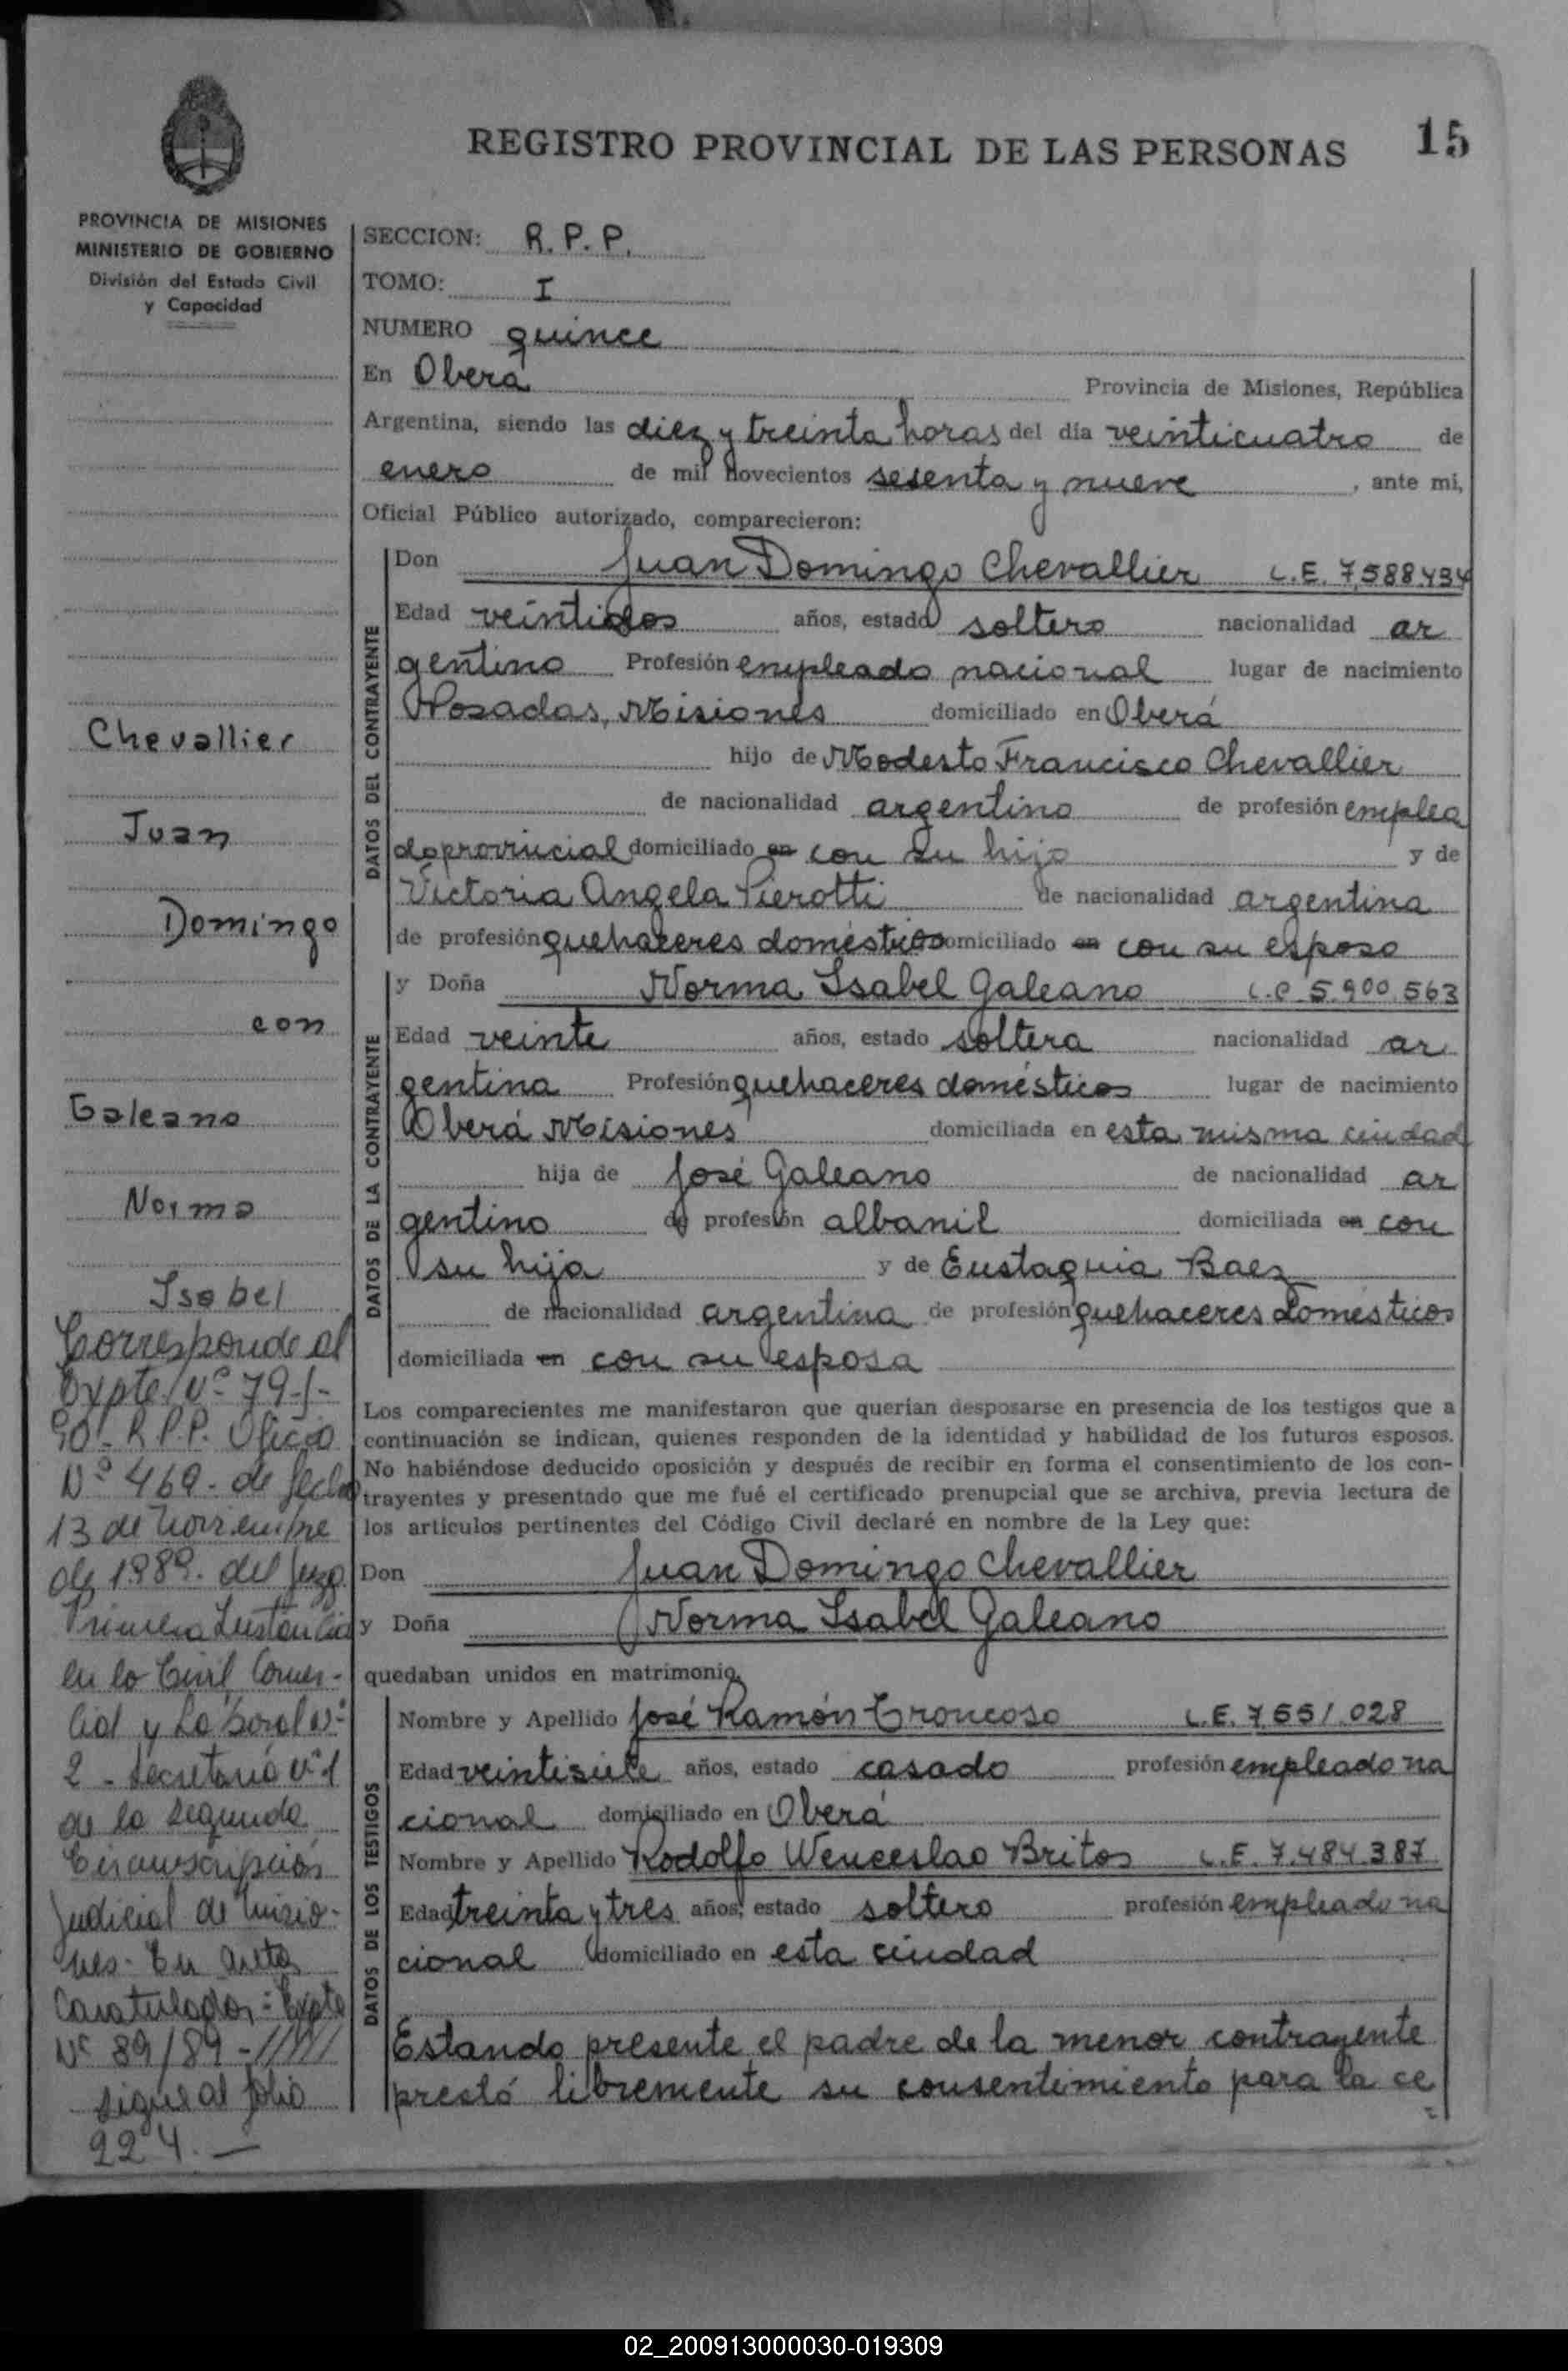 REGISTRO PROVINCIAL DE LAS PERSONAS 15
PROVINCIA DE MISIONES
MINISTERIO DE GOBIERNO
División del Estado Civil
y Capacidad
Chevallier
Juan
Domingo
con
Galeano
Norma
Isabel
Corresponde al
Expte Nº 79-/-
90- R.P.P. Oficio
Nº 469- de fecha
13 de Noviembre
de 1989. del Juzg.
Primera Instancia
en lo Civil Comer-
cial y Laboral Nº
2 - Secretaria Nº 1
de la Segunda
Circunscripción
Judicial de Misio-
nes- En autos
Caratulados: Expte
Nº 89/89-/////
sigue al folio
224.-
SECCION: R. P. P.
TOMO: I
NUMERO quince
En Oberá Provincia de Misiones, República
Argentina, siendo las diez y treinta horas del día veinticuatro de
enero de mil novecientos sesenta y nueve, ante mi,
Oficial Público autorizado, comparecieron:
DATOS DEL CONTRAYENTE
Don Juan Domingo Chevallier L.E. 7,588434
Edad veintidos años, estado soltero nacionalidad ar
gentino Profesión empleado nacional lugar de nacimiento
Posadas, Misiones domiciliado en Oberá
hijo de Modesto Francisco Chevallier
de nacionalidad argentino de profesión emplea
do provincial domiciliado en con su hijo y de
Victoria Angela Pierotti de nacionalidad argentina
de profesión quehaceres domésticos domiciliado en con su esposo
DATOS DE LA CONTRAYENTE
y Doña Norma Isabel Galeano L.C 5.900.563
Edad veinte años, estado soltera nacionalidad ar
gentina Profesión quehaceres domésticos lugar de nacimiento
Oberá Misiones domiciliada en esta misma ciudad
hija de José Galeano de nacionalidad ar
gentino de profesión albanil domiciliada en con
su hija y de Eustaquia Baez
de nacionalidad argentina de profesión quehaceres domésticos
domiciliada en con su esposa
Los comparecientes me manifestaron que querían desposarse en presencia de los testigos que a
continuación se indican, quienes responden de la identidad y habilidad de los futuros esposos.
No habiéndose deducido oposición y después de recibir en forma el consentimiento de los con-
trayentes y presentado que me fué el certificado prenupcial que se archiva, previa lectura de
los artículos pertinentes del Código Civil declaré en nombre de la Ley que:
Don Juan Domingo Chevallier
y Doña Norma Isabel Galeano
quedaban unidos en matrimonio.
DATOS DE LOS TESTIGOS
Nombre y Apellido José Ramón Troncoso L.E. 7,551.028
Edad veintisiete años, estado casado profesión empleado na
cional domiciliado en Oberá
Nombre y Apellido Rodolfo Wenceslao Britos L.E. 7.484.387
Edad treinta y tres años, estado soltero profesión empleado na
cional domiciliado en esta ciudad
Estando presente el padre de la menor contrayente
prestó libremente su consentimiento para la ce
02_200913000030-019309